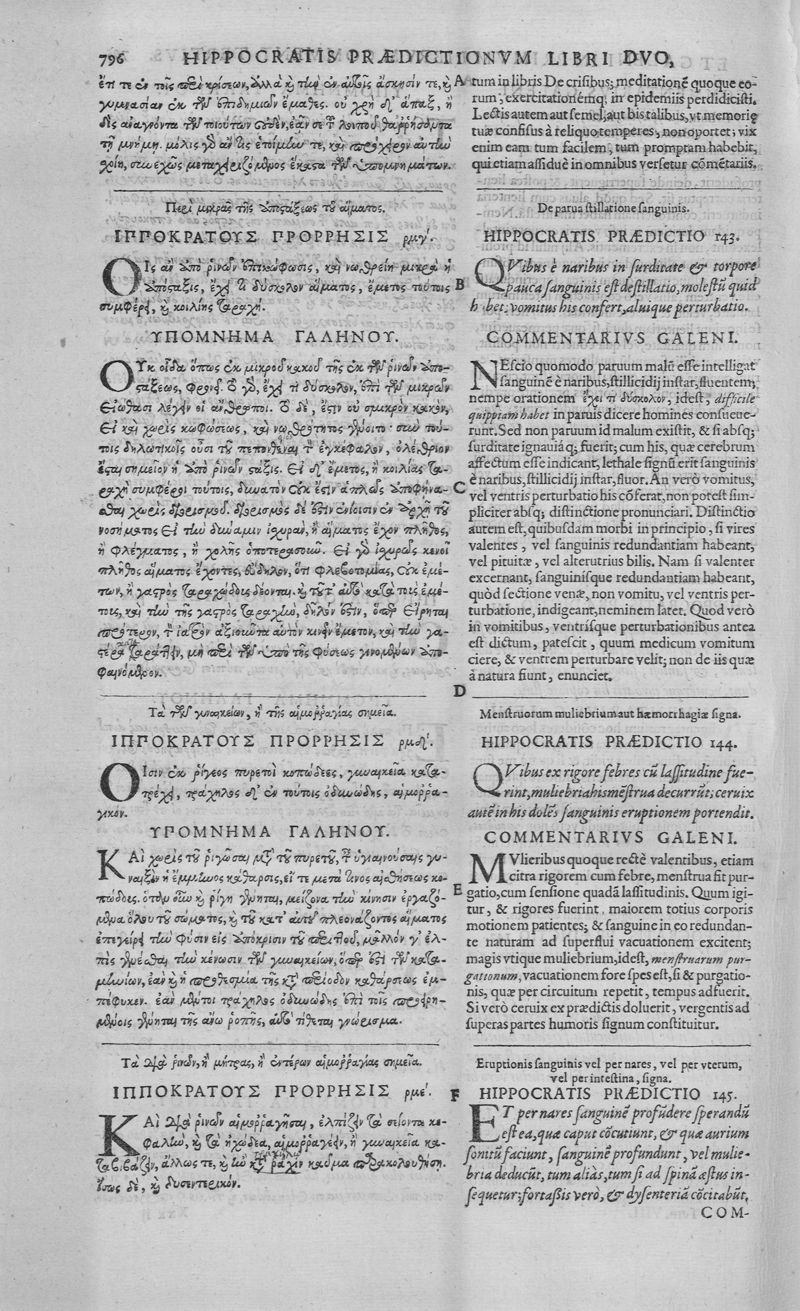 796 HIPPOCRATIS PRÆDICTIONVM LIBRI DVO,
ἔτι τε ἐν τοῖς περὶ κρίσεων, ἀλλὰ καὶ τὴν ἐν αὐτοῖς ἄσκησίν τε, καὶ
γυμνασίαν ἐκ τῶν ἐπιδημιῶν ἔμαθες. οὐ χρὴ δ' ἅπαξ, ἢ
δὶς ἀναγνόντα τῶν τοιούτων οὐδὲν, ἐᾶν σε τὸ λοιπὸν θαρρήσαντα
τῇ μνήμῃ. μόλις γὰρ ἂν τις ἑτοίμην τε, καὶ πρόχειρον αὐτὴν
σχοίη, συνεχῶς μεταχειριζόμενος ἕκαστα τῶν ὑπομνημάτων.
Περὶ μικρᾶς τῆς ἀποστάξεως τοῦ αἵματος.
ΙΠΠΟΚΡΑΤΟΥΣ ΠΡΟΡΡΗΣΙΣ ρμγ΄.
ΟΙς ἀπὸ ῥινῶν ἐπικώφωσις, καὶ νωθρείη μικρὰ ἡ
ἀπόσταξις, ἔχει τι δύσκολον αἵματος, ἔμετος τούτοις
συμφέρει, καὶ κοιλίης ταραχή.
ΥΠΟΜΝΗΜΑ ΓΑΛΗΝΟΥ.
ΟΥκ οἶδα ὅπως ἐκ μικροῦ κακοῦ τῆς ἐκ τῶν ῥινῶν ἀπο-
στάξεως, φρονεῖ. τὸ γὰρ, ἔχει τι δύσκολον, ἐπὶ τῶν μικρῶν
εἰώθασι λέγειν οἱ ἄνθρωποι. τὸ δὲ, ἔστιν οὐ σμικρὸν κακὸν,
εἰ καὶ χωρὶς κωφώσεως, καὶ νωθρότητος γένοιτο· σὺν τού-
τοις δηλωτικοῖς οὖσι τοῦ πεπονθέναι τὸν ἐγκέφαλον, ὀλέθριον
ἔσται σημεῖον ἡ ἀπὸ ῥινῶν στάξις. Εἰ δ' ἔμετος, ἢ κοιλίας τα-
ραχὴ συμφέρει τούτοις, δυνατὸν οὐκ ἔστιν ἁπλῶς ἀποφήνα-
σθαι χωρὶς διορισμοῦ. διορισμὸς δέ ἐστιν ἐνίοισιν ἐν ἀρχῇ τοῦ
νοσήματος εἰ τὴν δύναμιν ἰσχυρὰν, ἢ αἵματος ἔχον πλῆθος,
ἢ φλέγματος, ἢ χολῆς ὁποτερασοῦν. Εἰ γὰρ ἰσχυρῶς κενοῖ
πλῆθος αἵματος ἔχοντες, εὔδηλον, ὅτι φλεβοτομίας, οὐκ ἐμέ-
των, ἢ γαστρὸς ταραχώδεις δέονται. καὶ τοῦτ' αὐτὸ κατὰ τοὺς ἐμέ-
τους, καὶ τὴν τῆς γαστρὸς ταραχὴν, δηλόν ἐστιν, ὅπερ εἴρηται
πρότερον, τὸν ἰατρὸν ἀξιοῦντα αὐτὸν κινεῖν ἔμετον, καὶ τὴν γα-
στέρα ταράττειν, μὴ περὶ τῶν ὑπὸ τῆς φύσεως γινομένων ἀπο-
φαινόμενον.
Τὰ τῶν γυναικείων, ἢ τῆς αἱμορραγίας σημεῖα.
ΙΠΠΟΚΡΑΤΟΥΣ ΠΡΟΡΡΗΣΙΣ ρμδ΄.
ΟΙσιν ἐκ ῥίγεος πυρετοὶ κοπώδεες, γυναικεῖα κατα-
τρέχει, τράχηλος δ' ἐν τούτοις ὀδυνώδης, αἱμορρα-
γικόν.
ΥΠΟΜΝΗΜΑ ΓΑΛΗΝΟΥ.
ΚΑὶ χωρὶς τοῦ ῥιγῶσαι μετὰ τοῦ πυρετοῦ, τὰς ὑγιαινούσας γυ-
ναῖξιν ἡ ἔμμηνος κάθαρσις, εἴ τε μετά τινος αἰσθήσεως κο-
πώδους. ὅταν οὖν καὶ ῥίγη γένηται, μείζονα τὴν κίνησιν ἐργαζό-
μενα ὅλου τοῦ σώματος, καὶ τοῦ κατ' αὐτὸ πλεονάζοντος αἵματος
ἐπεγείρει τὴν φύσιν εἰς ἀπόκρισιν τοῦ περιττοῦ, μᾶλλον γ' ἐλ-
πὶς γενέσθαι τὴν κένωσιν τῶν γυναικείων, ὅπερ ἐστὶ τῶν κατα-
μηνίων, ἐὰν καὶ ἡ προθεσμία τῆς κατὰ περίοδον καθάρσεως ἐμ-
πέφυκεν. ἐὰν μέντοι τράχηλος ὀδυνώδης ἐπὶ τοῖς προειρη-
μένοις γένηται τῆς ἄνω ῥοπῆς, αὐτὸ τίθεται γνώρισμα.
Τὰ διὰ ῥινῶν, ἢ μήτρας, ἢ ἐντέρων αἱμορραγίας σημεῖα.
ΙΠΠΟΚΡΑΤΟΥΣ ΠΡΟΡΡΗΣΙΣ ρμε΄.
ΚΑὶ διὰ ῥινῶν αἱμορραγῆσαι, ἐλπίζειν τὰ σείοντα κε-
φαλὴν, καὶ τὰ ἠχώδεα, αἱμορραγέειν, ἢ γυναικεῖα κα-
ταβιβάζειν, ἄλλως τε, καὶ ἢν κατὰ ῥάχιν καῦμα παρακολουθήσῃ.
ἴσως δὲ, καὶ δυσεντερικόν.
A tum in libris De crisibus; meditationē quoque eo-
rum, exercitationēmq; in epidemiis perdidicisti.
Lectis autem aut semel, aut bis talibus, vt memoriæ
tuæ confisus à reliquo temperes, non oportet; vix
enim eam tum facilem, tum promptam habebit,
qui etiam assiduè in omnibus versetur cōmētariis.
De parua stillatione sanguinis.
HIPPOCRATIS PRÆDICTIO 143.
QVibus è naribus in surditate & torpore
B pauca sanguinis est destillatio, molestū quid
habet; vomitus his confert, aluique perturbatio.
COMMENTARIVS GALENI.
NEscio quomodo paruum malū esse intelligat
sanguinē è naribus, stillicidij instar, fluentem;
nempe orationem ἔχει τι δύσκολον, idest, difficile
quippiam habet in paruis dicere homines consueue-
runt. Sed non paruum id malum existit, & si absq;
surditate ignauiáq; fuerit; cum his, quæ cerebrum
affectum esse indicant, lethale signū erit sanguinis
è naribus, stillicidij instar, fluor. An verò vomitus,
C vel ventris perturbatio his cōferat, non potest sim-
pliciter absq; distinctione pronunciari. Distinctio
autem est, quibusdam morbi in principio, si vires
valentes, vel sanguinis redundantiam habeant,
vel pituitæ, vel alterutrius bilis. Nam si valenter
excernant, sanguinisque redundantiam habeant,
quòd sectione venæ, non vomitu, vel ventris per-
turbatione, indigeant, neminem latet. Quod verò
in vomitibus, ventrisque perturbationibus antea
est dictum, patescit, quum medicum vomitum
ciere, & ventrem perturbare velit; non de iis quæ
à natura fiunt, enunciet.
D
Menstruorum muliebrium aut hæmorrhagiæ signa.
HIPPOCRATIS PRÆDICTIO 144.
QVibus ex rigore febres cū lassitudine fue-
rint, muliebria his mēstrua decurrūt; ceruix
autē in his dolēs sanguinis eruptionem portendit.
COMMENTARIVS GALENI.
MVlieribus quoque rectè valentibus, etiam
citra rigorem cum febre, menstrua fit pur-
E gatio, cum sensione quadā lassitudinis. Quum igi-
tur, & rigores fuerint, maiorem totius corporis
motionem patientes; & sanguine in eo redundan-
te naturam ad superflui vacuationem excitent;
magis vtique muliebrium, idest, menstruarum pur-
gationum, vacuationem fore spes est, si & purgatio-
nis, quæ per circuitum repetit, tempus adfuerit.
Si verò ceruix ex prædictis doluerit, vergentis ad
superas partes humoris signum constituitur.
Eruptionis sanguinis vel per nares, vel per vterum,
vel per intestina, signa.
F HIPPOCRATIS PRÆDICTIO 145.
ET per nares sanguinē profūdere sperandū
est ea, quæ caput cōcutiunt, & quæ aurium
sonitū faciunt, sanguinē profundunt, vel mulie-
bria deducūt, tum aliàs, tum si ad spinā æstus in-
sequetur; fortassis verò, & dysenteriā cōcitabūt,
COM-